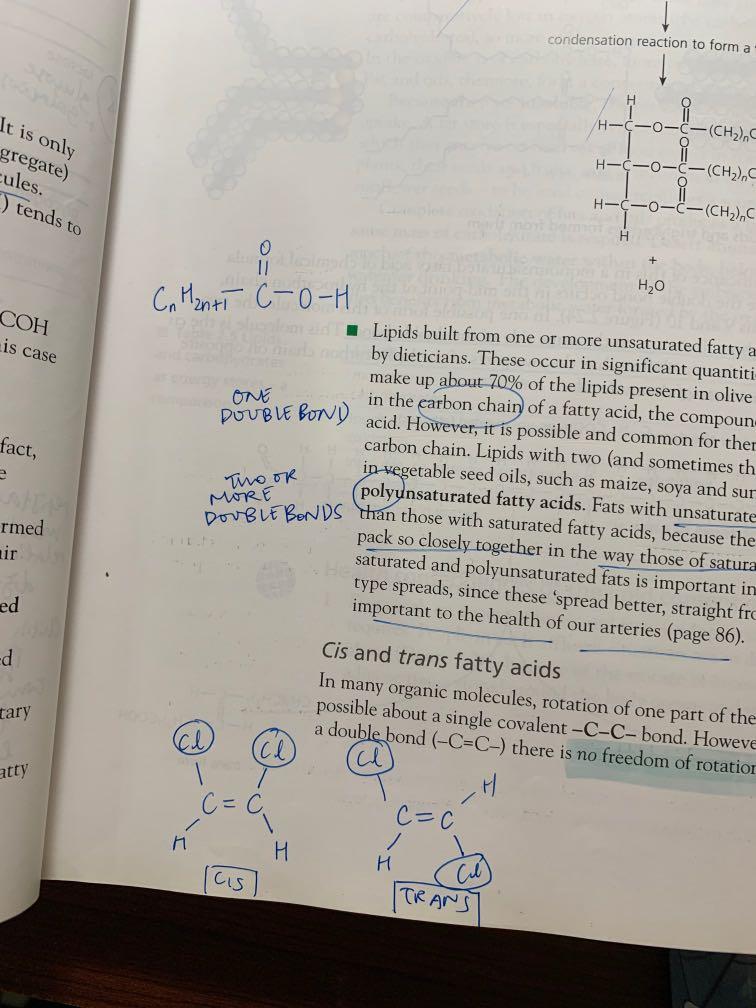 condensation reaction to form a
H O
H–C–O–C–(CH2)nC
O
H–C–O–C–(CH2)nC
O
H–C–O–C–(CH2)nC
H
+
H2O
It is only
gregate)
cules.
) tends to
COH
is case
fact,
e
rmed
air
ed
d
tary
atty
O
CnH2n+1–C–O–H
ONE
DOUBLE BOND
TWO OR
MORE
DOUBLE BONDS
Lipids built from one or more unsaturated fatty a
by dieticians. These occur in significant quantiti
make up about 70% of the lipids present in olive
in the carbon chain of a fatty acid, the compoun
acid. However, it is possible and common for ther
carbon chain. Lipids with two (and sometimes th
in vegetable seed oils, such as maize, soya and sun
polyunsaturated fatty acids. Fats with unsaturate
than those with saturated fatty acids, because the
pack so closely together in the way those of satura
saturated and polyunsaturated fats is important in
type spreads, since these ‘spread better, straight fro
important to the health of our arteries (page 86).
Cis and trans fatty acids
In many organic molecules, rotation of one part of the
possible about a single covalent –C–C– bond. Howeve
a double bond (–C=C–) there is no freedom of rotation
Cl Cl
C=C
H H
CIS
Cl H
C=C
H Cl
TRANS